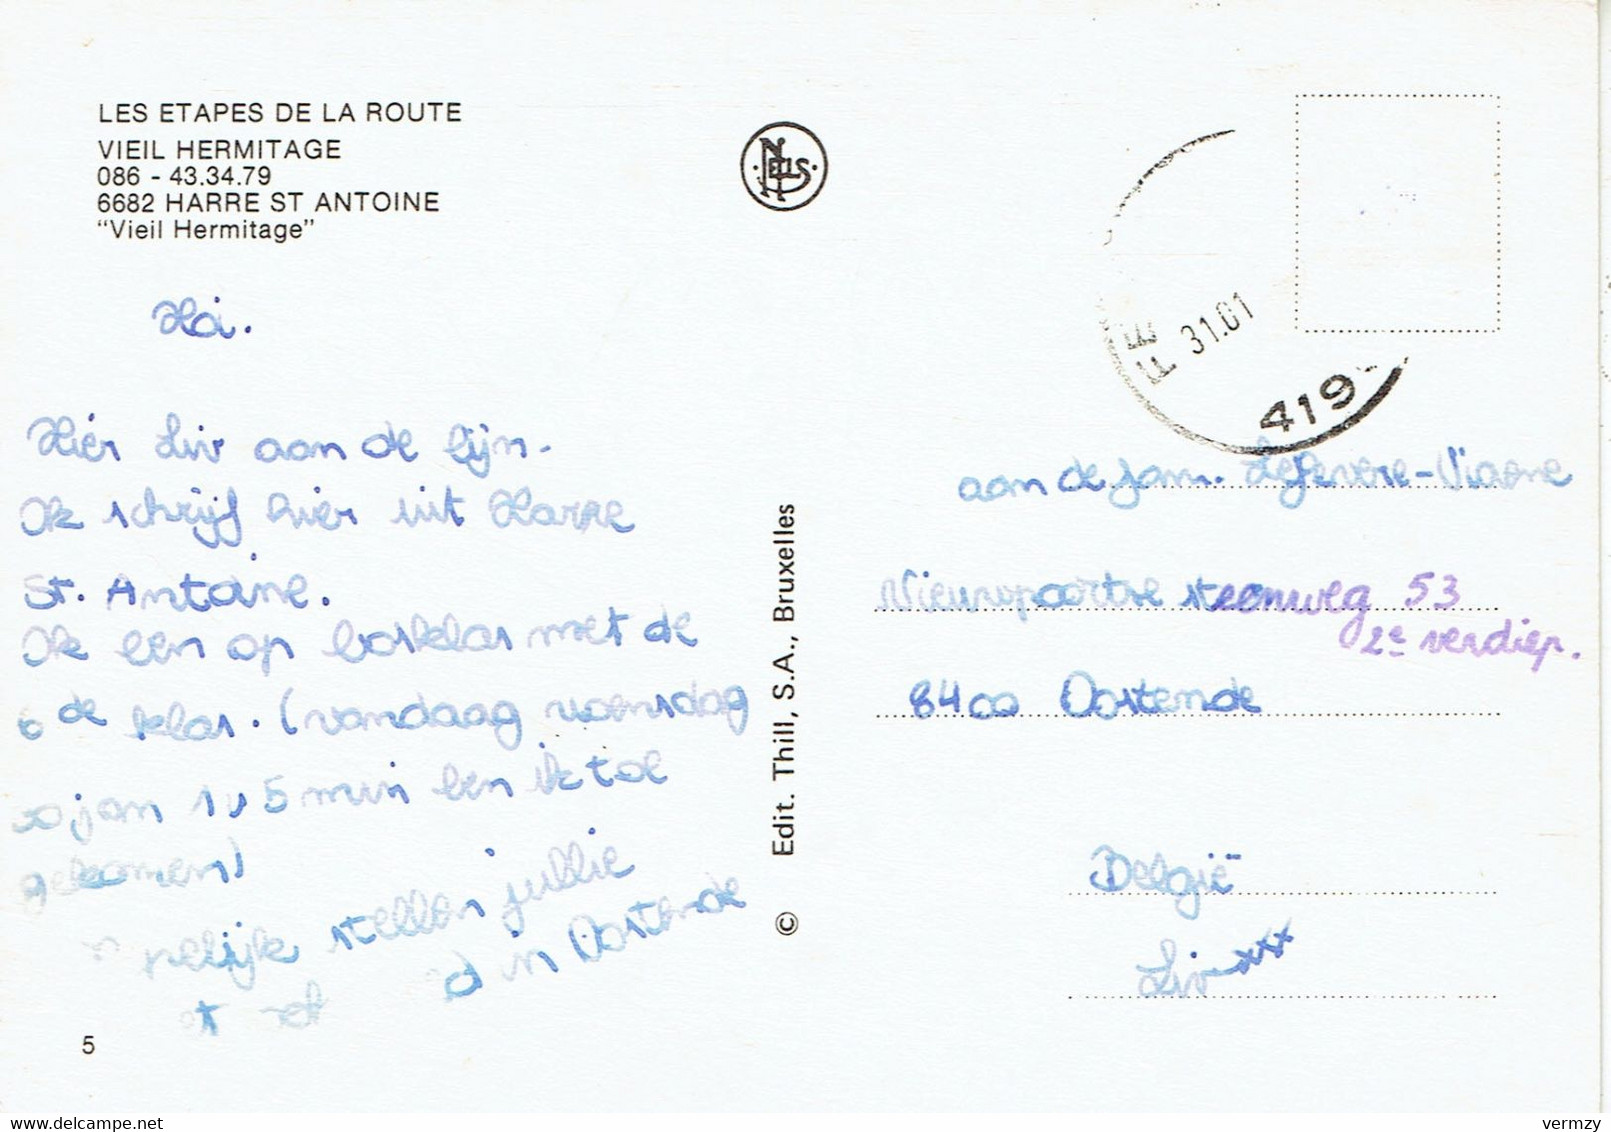 LES ETAPES DE LA ROUTE
VIEIL HERMITAGE
086 - 43.34.79
6682 HARRE ST ANTOINE
"Vieil Hermitage"
NELS
Hoi.
Hier Liv aan de lijn.
Ik schrijf hier uit Harre
St. Antoine.
Ik ben op bosklas met de
6de klas. (vandaag woensdag
30 jan 1u 5 min ben ik toe
gekomen)
stellen jullie
in Oostende
5
© Edit. Thill, S.A., Bruxelles
31.01
419
aan de fam. Lefevere-Viaene
Nieuwpoortse steenweg 53
2e verdiep.
8400 Oostende
België
Liv xxx
vermzy